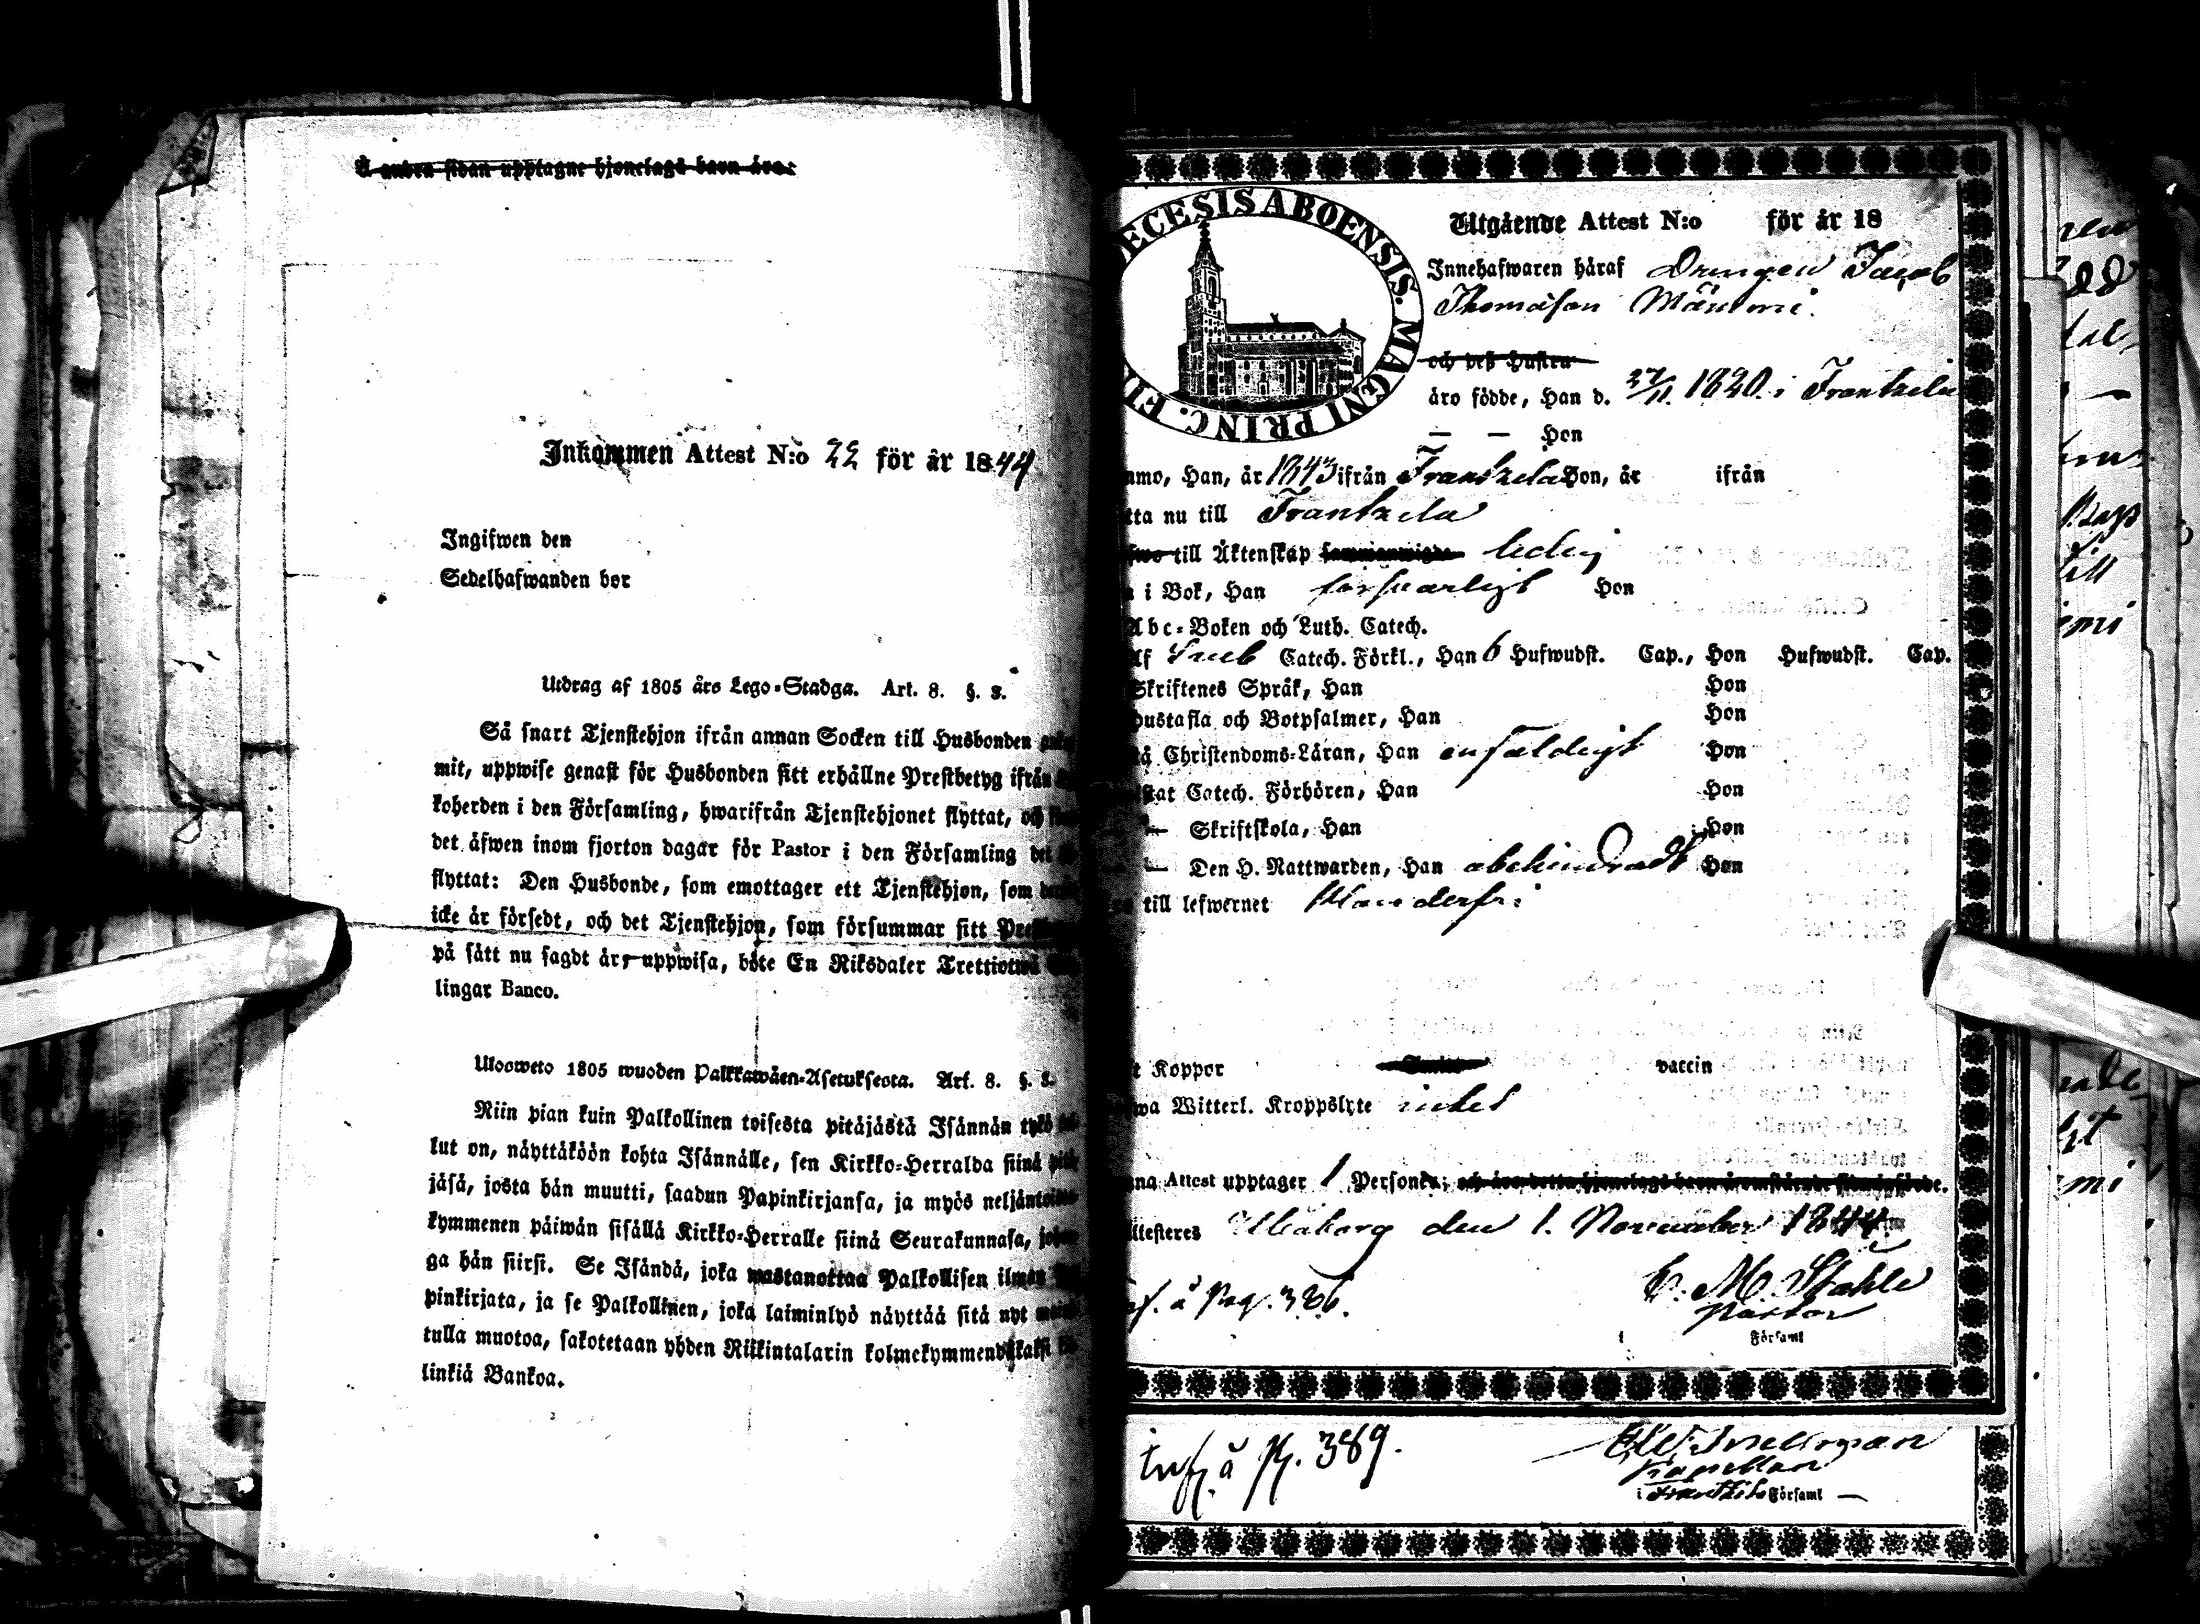 Å andra sidan upptagne hjonelags barn äro:
Inkommen Attest N:o 22 för år 1844
Ingifwen den
Sedelhafwanden bor
Utdrag af 1805 års Lego-Stadga. Art. 8. §. 8.
Så snart Tjenstehjon ifrån annan Socken till Husbonden
mit, uppwise genast för Husbonden sitt erhållne Prestbetyg ifrån
koherden i den Församling, hwarifrån Tjenstehjonet flyttat, och
det äfwen inom fjorton dagar för Pastor i den Församling det
flyttat: Den Husbonde, som emottager ett Tjenstehjon, som
icke är försedt, och det Tjenstehjon, som försummar sitt
på sätt nu sagdt är, uppwisa, böte En Riksdaler Trettiotwå
lingar Banco.
Uloosweto 1805 wuoden Palkkawäen-Asetuksesta. Art. 8. §. 8.
Niin pian kuin Palkollinen toisesta pitäjästä Isännän tykö
lut on, näyttäköön kohta Isännälle, sen Kirkko-Herralda siinä
jäsä, josta hän muutti, saadun Papinkirjansa, ja myös
kymmenen päiwän sisällä Kirkko-Herralle siinä Seurakunnasa,
ga hän siirsi. Se Isändä, joka wastanottaa Palkollisen ilman
pinkirjata, ja se Palkollinen, joka laiminlyö näyttää sitä nyt
tulla muotoa, sakotetaan yhden Riikintalarin kolmekymmendäkaksi
linkiä Bankoa.
ECESIS ABOENSIS. MAGNI PRINC. FI
Utgående Attest N:o för år 18
Innehafwaren häraf Drengen Jacob
Thomasson Mänmi.
och deß Hustru
äro födde, Han d. 27/11 1820 i Frantzila
— — Hon
mmo, Han, år 1843 ifrån Frantzila Hon, år ifrån
tta nu till Frantzila
till Äktenskap ledig
i Bok, Han försvarligt Hon
Abc-Boken och Luth. Catech.
Af Sveb Catech. Förkl., Han 6 Hufwudst. Cap., Hon Hufwudst. Cap.
Skriftenes Språk, Han Hon
Hustafla och Botpsalmer, Han Hon
Christendoms-Läran, Han enfaldigt Hon
stat Catech. Förhören, Han Hon
— Skriftskola, Han Hon
— Den H. Nattwarden, Han obehindradt Hon
till lefwernet klanderfri
Koppor vaccin
wa Witterl. Kroppslyte intet
na Attest upptager 1 Person
ttesteres Uleåborg den 1. November 1844.
Inf. å Pag. 386.
C. M. Stahle
Pastor
i Församl
Inf. å Pag. 389.
Snellman
Kapellan
i Frantzila Församl —